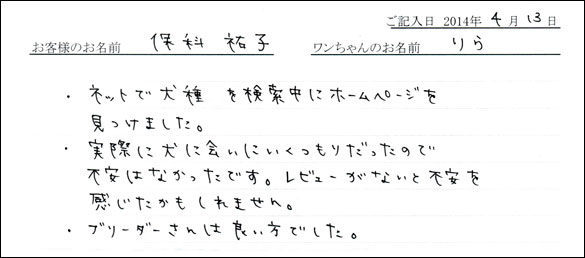 ご記入日 2014年 4月 13日
お客様のお名前 保科 祐子 ワンちゃんのお名前 りら
・ネットで犬種を検索中にホームページを
見つけました。
・実際に犬に会いにいくつもりだったので
不安はなかったです。レビューがないと不安を
感じたかもしれません。
・ブリーダーさんは良い方でした。